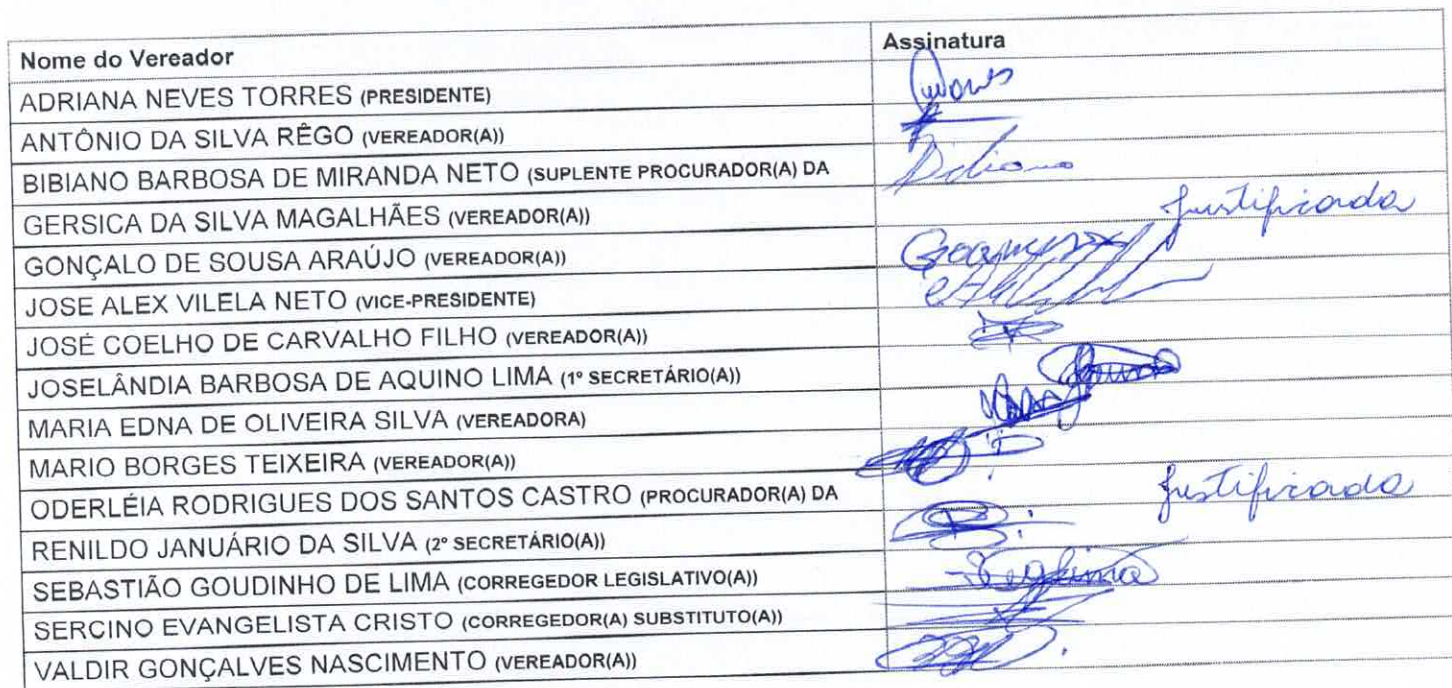 Nome do Vereador Assinatura
ADRIANA NEVES TORRES (PRESIDENTE)
ANTÔNIO DA SILVA RÊGO (VEREADOR(A))
BIBIANO BARBOSA DE MIRANDA NETO (SUPLENTE PROCURADOR(A) DA
GERSICA DA SILVA MAGALHÃES (VEREADOR(A)) Justificada
GONÇALO DE SOUSA ARAÚJO (VEREADOR(A))
JOSE ALEX VILELA NETO (VICE-PRESIDENTE)
JOSÉ COELHO DE CARVALHO FILHO (VEREADOR(A))
JOSELÂNDIA BARBOSA DE AQUINO LIMA (1º SECRETÁRIO(A))
MARIA EDNA DE OLIVEIRA SILVA (VEREADORA)
MARIO BORGES TEIXEIRA (VEREADOR(A))
ODERLÉIA RODRIGUES DOS SANTOS CASTRO (PROCURADOR(A) DA Justificada
RENILDO JANUÁRIO DA SILVA (2º SECRETÁRIO(A))
SEBASTIÃO GOUDINHO DE LIMA (CORREGEDOR LEGISLATIVO(A))
SERCINO EVANGELISTA CRISTO (CORREGEDOR(A) SUBSTITUTO(A))
VALDIR GONÇALVES NASCIMENTO (VEREADOR(A))